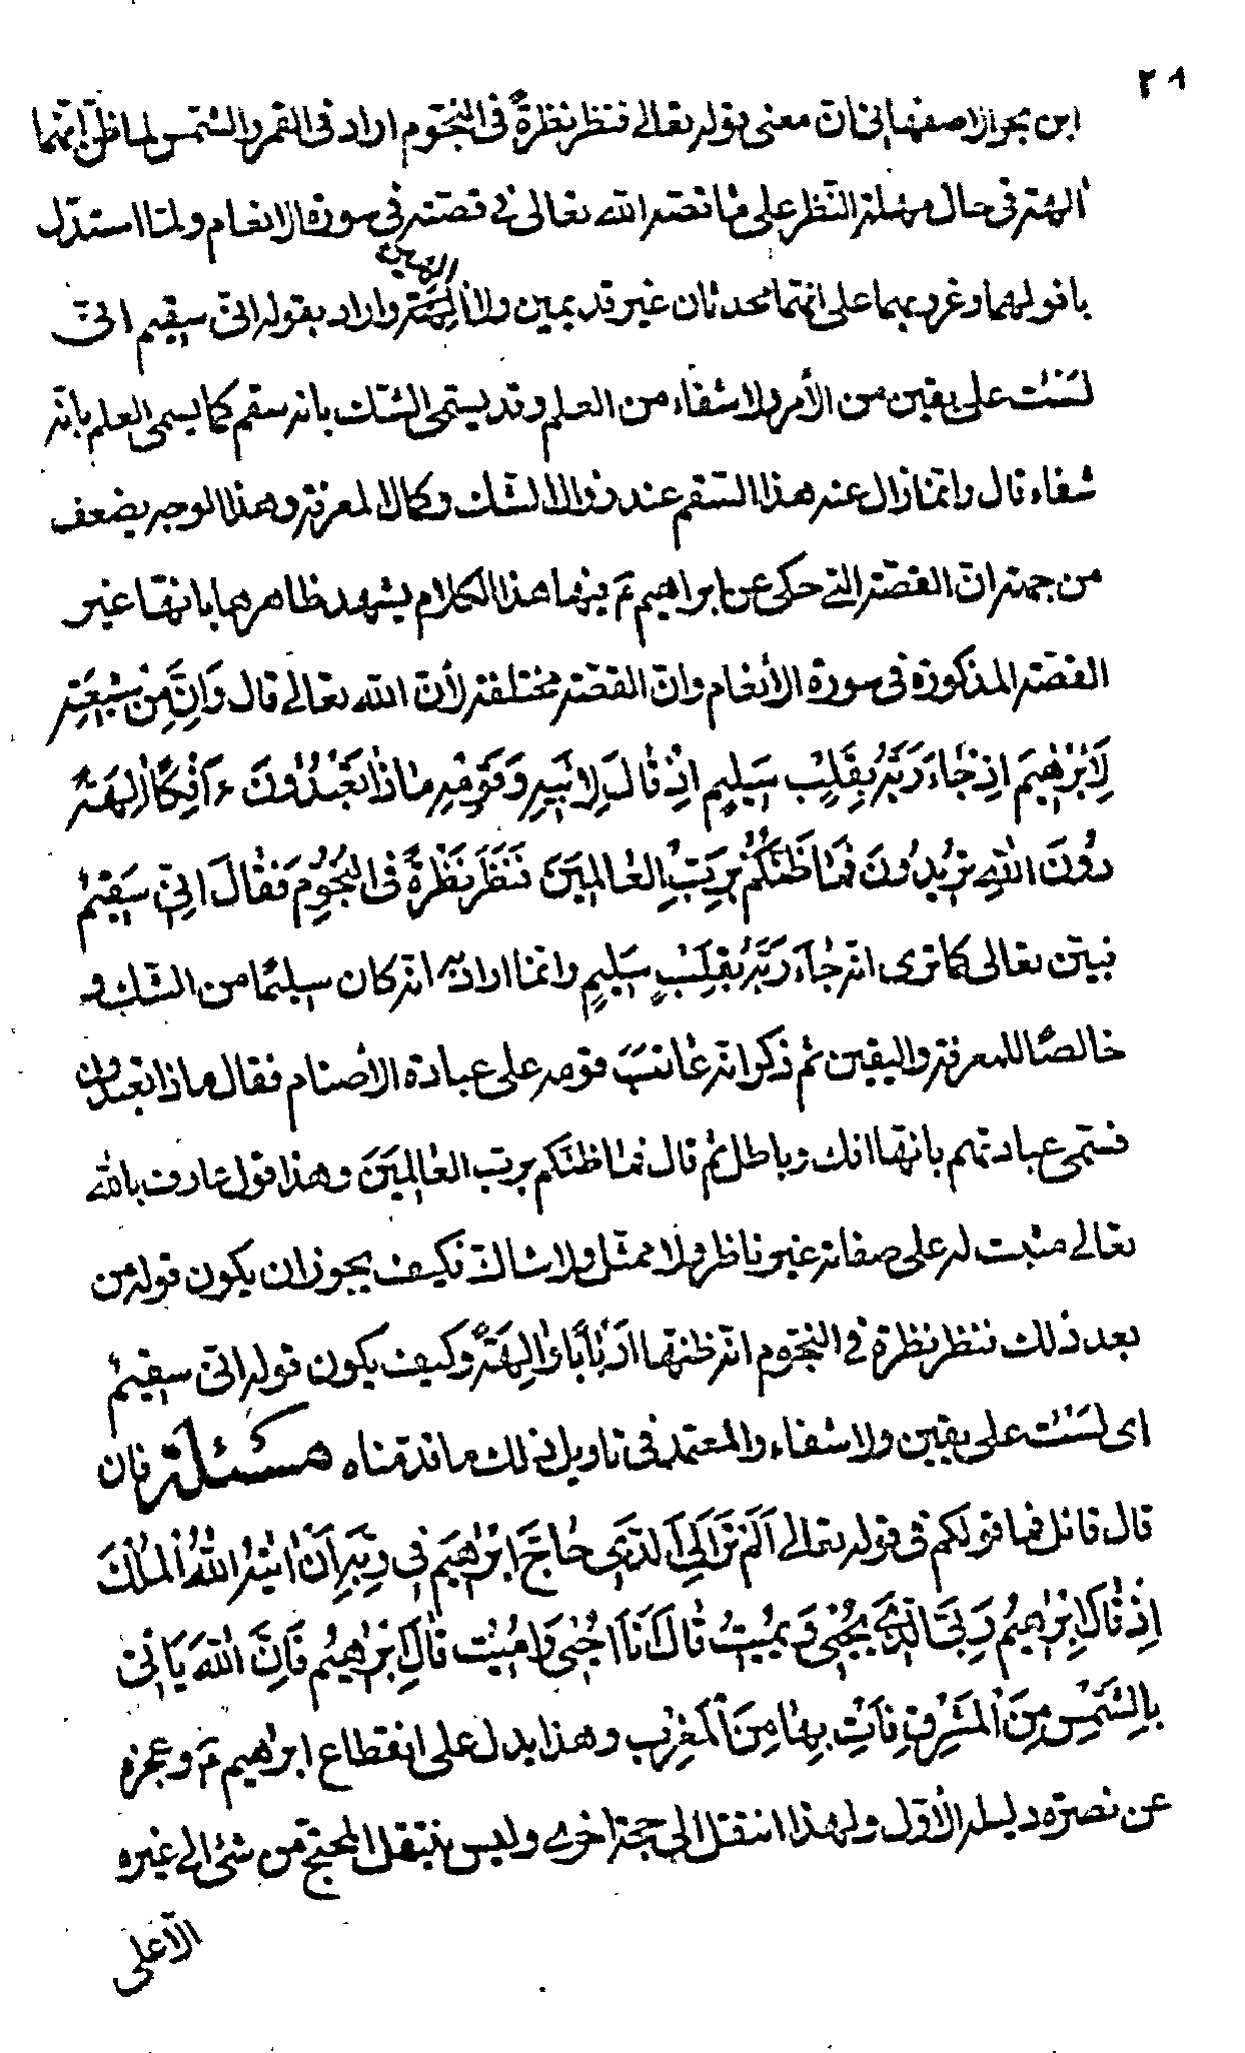 ٢٨
ابن بحر الاصفهانى ان معنى قوله تعالى فنظر نظرةً فى النجوم اراد فى القمر والشمس لما ظنّ انهما
آلهة فى حال مهلة النّظر على ما قصّه الله تعالى فى قصّته فى سورة الانعام ولمّا استدلّ
بافولهما وغروبهما على انهما محدثان غير قديمين ولا الهَين واراد بقوله انّى سقيم انّى
لَسْتُ على يقين من الأمر ولا شفاء من العلم وقد يسمّى الشّك بانه سقم كما يسمى العلم بانّه
شفاء قال وانمّا زال عنه هذا السّقم عند زوال الشّك وكمال المعرفة وهذا الوجه يضعف
من جهة انّ القصّة التى حكى عن ابراهيم ع فيها هذا الكلام يشهد ظاهرها بانها غير
القصّة المذكورة فى سورة الأنعام وانّ القصّة مختلفة لأنّ الله تعالى قال وَاِنَّ مِنْ شيعَتِهِ
لَاِبْرٰهيمَ اِذ جٰاءَ رَبَّهُ بِقَلبٍ سَليمٍ اِذْ قٰالَ لِاَبيهِ وَقَومِهِ مٰاذٰا تَعْبُدُونَ ءَاَفِكًا اٰلِهَةً
دُونَ اللهِ تُريدُونَ فَمٰا ظَنُّكُمْ بِرَبِّ العٰالَمينَ فَنَظَرَ نَظْرَةً فى النُّجُومِ فَقٰالَ اِنّى سَقيمٌ
فبيّن تعالى كما ترى انّه جٰاءَ رَبَّهُ بِقَلْبٍ سَليمٍ وانمّا اراد به انّه كان سليمًا من الشّك و
خالصًا للمعرفة واليقين ثم ذكر انّه عٰاتبَ قومه على عبادة الأصنام فقال ماذا تعبدون
فسمّى عبادتهم بانها افك وباطل ثم قال فمٰا ظنّكم بربّ العٰالمينَ وهذا قول عارف بالله
تعالى مثبت له على صفاته غير ناظر ولا ممثّل ولا شاكّ فكيف يجوز ان يكون قوله من
بعد ذلك فنظر نظرة فى النجّوم انّه ظنّها اَرْبٰابًا وٰالِهَةً وكيف يكون قوله انّى سقيمٌ
اى لَسْتُ على يقين ولا شفاء والمعتمد فى تاويل ذلك ما قدّمناه مسئلة فان
قال قائل فما قولكم فى قوله تعالى اَلَمْ تَرَ اِلَى الَّذى حٰاجَّ ابْرٰهيمَ فى رَبِّهِ اَنْ اٰتٰيهُ اللهُ الْمُلْكَ
اِذْ قٰالَ اِبْرٰهيمُ رَبِّىَ الَّذى يُحْيى وَيُميتُ قٰالَ اَنَا اُحْيى وَاُميتُ قٰالَ اِبْرٰهيمُ فَاِنَّ اللهَ يَاْتى
بِالشَّمْسِ مِنَ الْمَشْرِقِ فَاْتِ بِهٰا مِنَ الْمَغْرِبِ وهذا يدل على انقطاع ابرٰهيم ع وعجزه
عن نصرة دليله الأوّل ولهذا انتقل الى حجّة اخرى وليس ينتقل المحتجّ من شئ الى غيره
الّا على